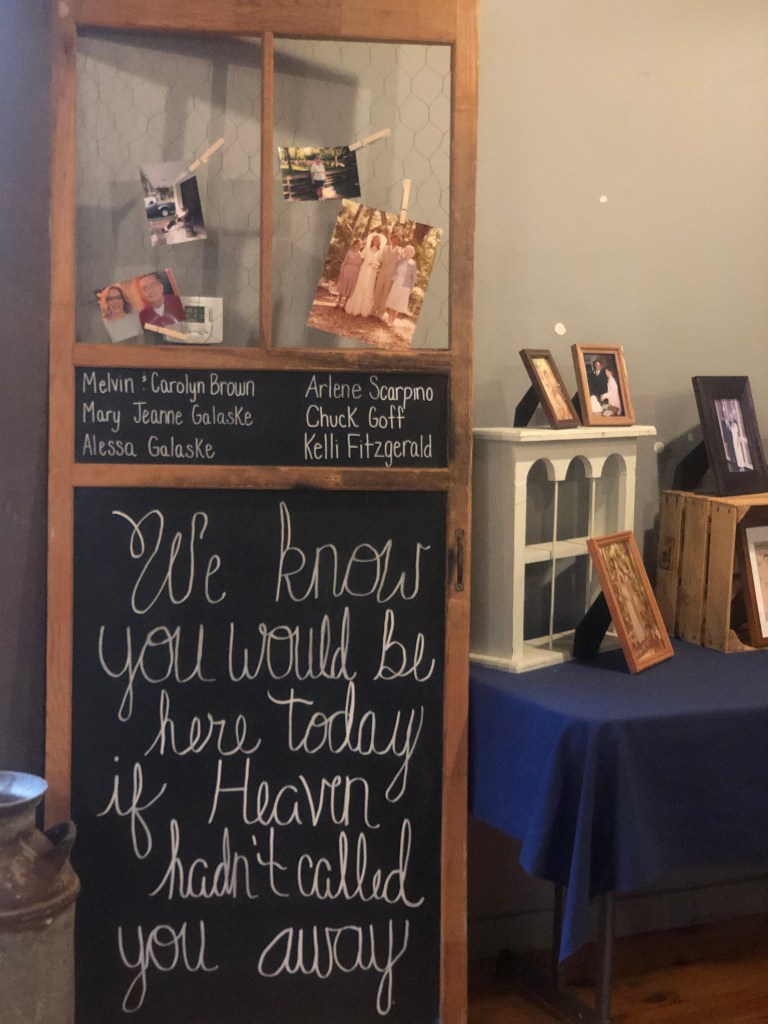 Melvin & Carolyn Brown
Mary Jeanne Galaske
Alessa Galaske
Arlene Scarpino
Chuck Goff
Kelli Fitzgerald
We know
you would be
here today
if Heaven
hadn't called
you away